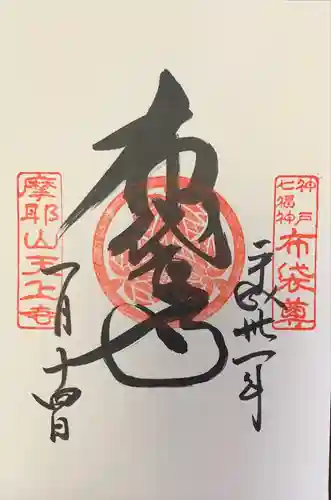 神戸
七福神
布袋尊
平成卅一年
布袋
一月十四日
摩耶山天上寺